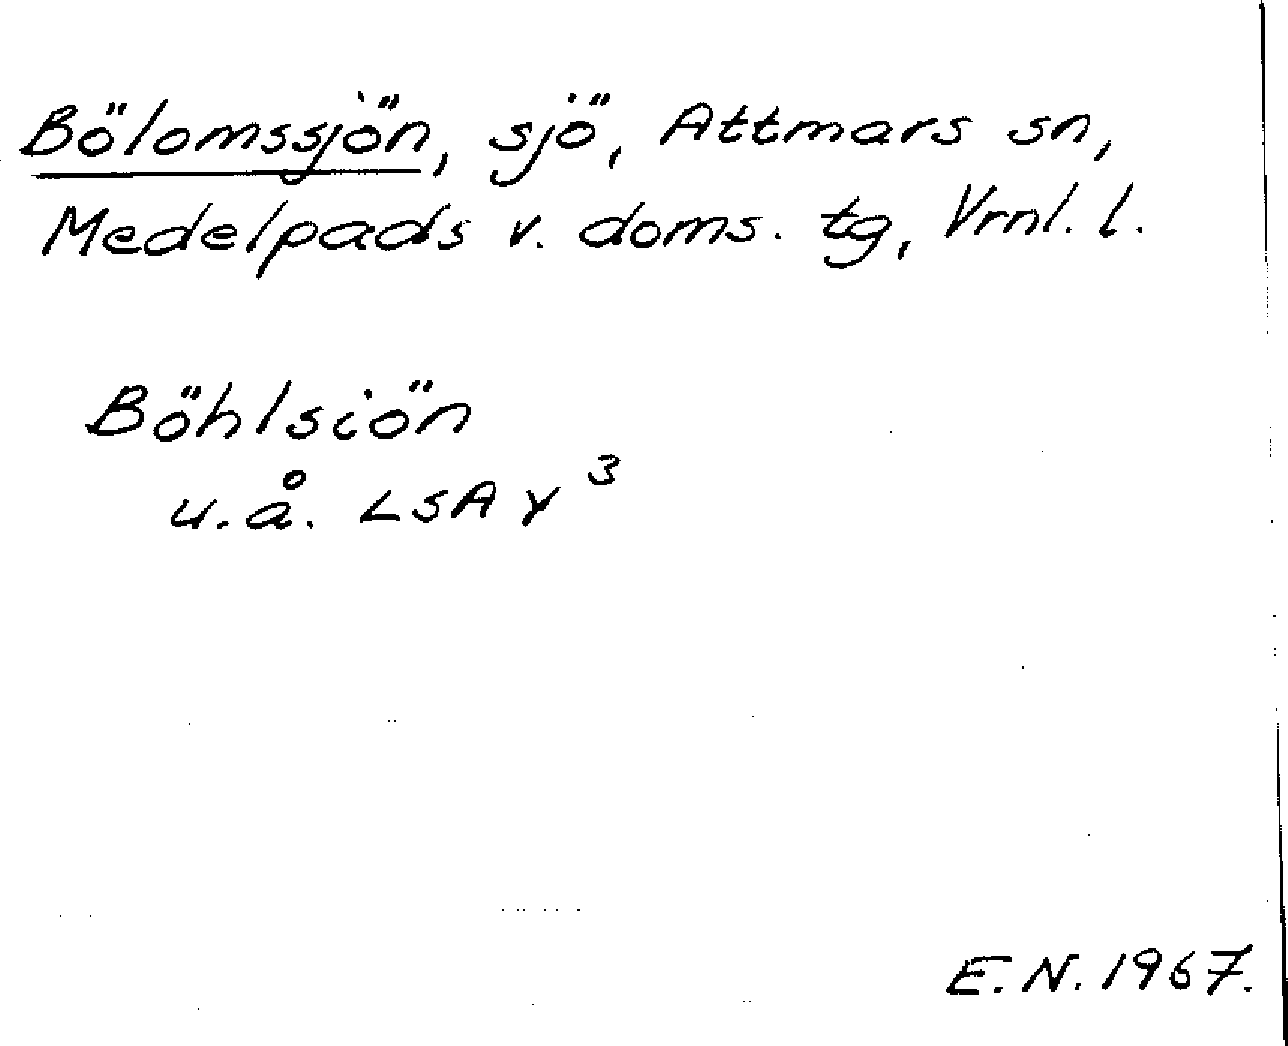 Bölomssjön, sjö, Attmars sn,
Medelpads v. doms. tg, Vrnl. l.
Böhlsiön
u.å. LSA Y 3
E.N. 1967.